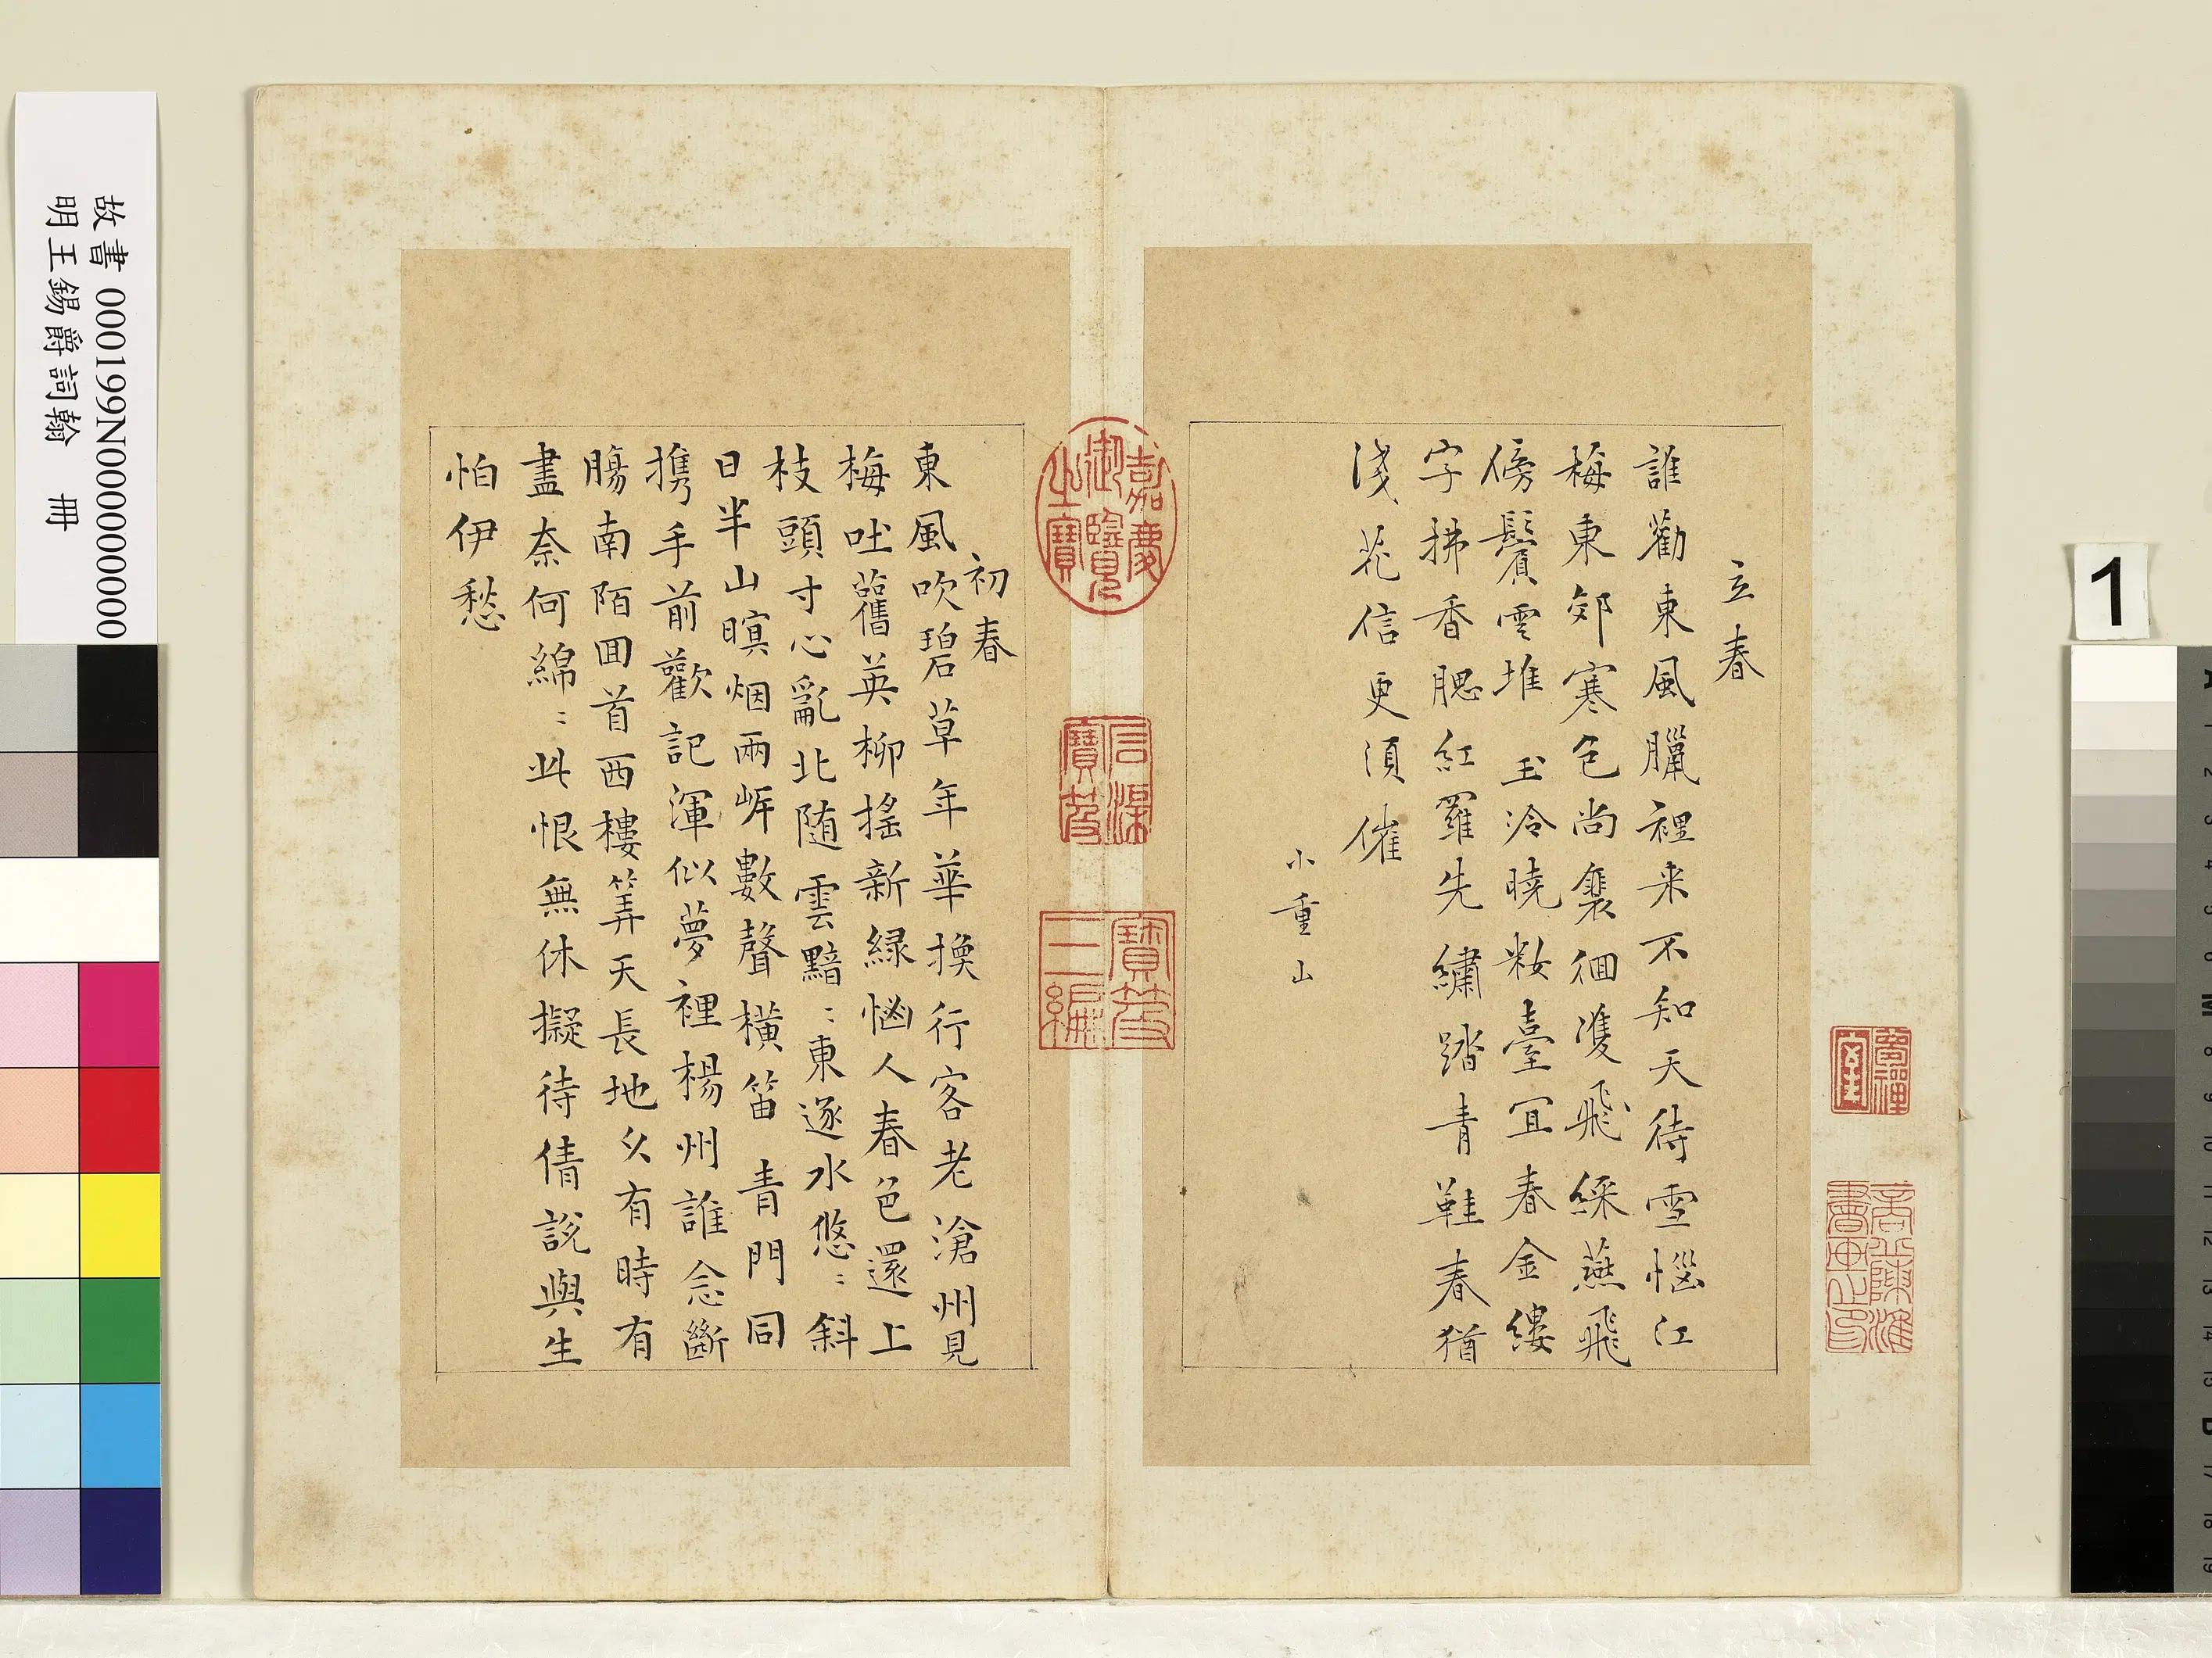 立春
誰勸東風臘裡来不知天待雪惱江
梅東郊寒色尚褭徊雙飛綵燕飛
傍鬢雲堆玉冷曉粧臺宜春金縷
字拂香腮紅羅先繡踏青鞋春猶
淺花信更須催
小重山
初春
東風吹碧草年華換行客老滄州見
梅吐舊英柳搖新緑惱人春色還上
枝頭寸心亂北随雲黯〻東逐水悠〻斜
日半山暝烟兩岸數聲橫笛青門同
携手前歡記渾似夢裡楊州誰念斷
腸南陌囬首西樓筭天長地久有時有
盡奈何綿〻此恨無休擬待倩說與生
怕伊愁
嘉慶御覽之寶
石渠寶笈
寶笈三編
故書 000199N000000000
明王錫爵詞翰 冊
1